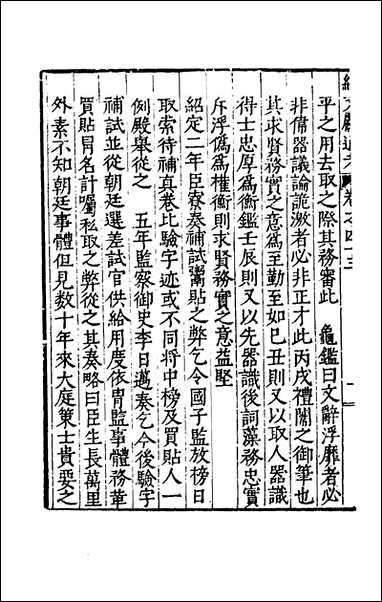 平之用去取之際其務審此　龜鑑曰文辭浮靡者必
非偹器議論詭激者必非正才此丙戌禮闈之御筆也
其求賢務實之意爲至勤至如已丑則又以取人器識
得士忠厚爲衡鑑壬辰則又以先器識後詞藻務忠實
斥浮僞爲權衡則求賢務實之意益堅
紹定二年臣寮奏補試鬻貼之弊乞令國子監放榜日
取索待補真卷比驗字迹或不同將中榜及買貼人一
例殿舉從之　五年監察御史李日邁奏乞今後驗字
補試並從朝廷選差試官供給用度依胄監事體務革
買貼冒名計囑私取之弊從之其奏略曰臣生長萬里
外素不知朝廷事體但見數十年來大庭策士貴要之